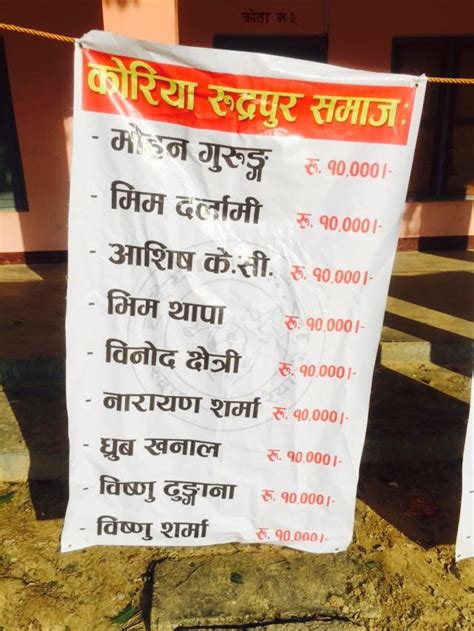 कोठा नं ३
कोरिया रुद्रपुर समाजः
- मोहन गुरुङ्ग रू. १०,०००।-
- मिम दर्लामी रू. १०,०००।-
- आशिष के.सी. रू. १०,०००।-
- भिम थापा रू. १०,०००।-
- विनोद क्षेत्री रू. १०,०००।-
- नारायण शर्मा रू. १०,०००।-
- ध्रुब खनाल रू. १०,०००।-
- विष्णु ढुङ्गाना रू. १०,०००।-
- विष्णु शर्मा रू. १०,०००।-